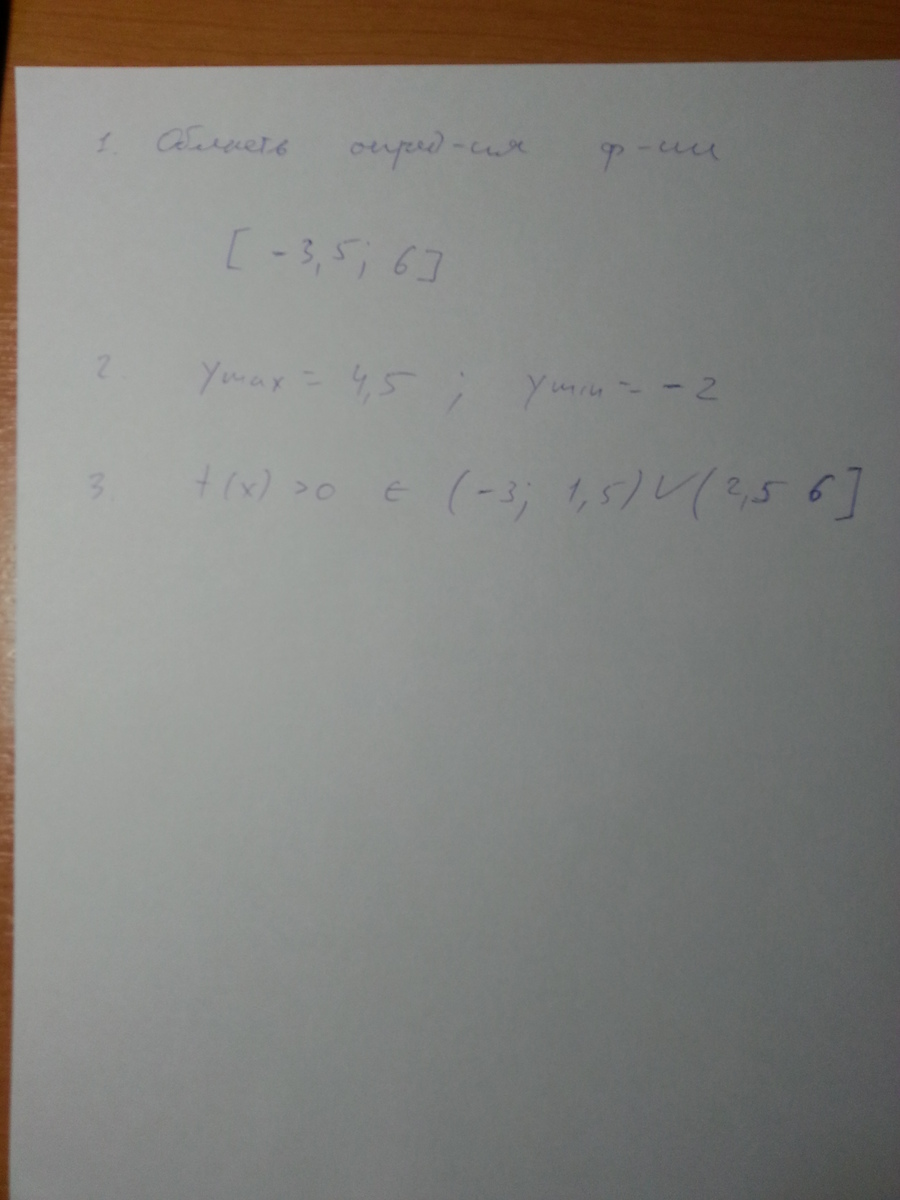 1. Область опред-ия ф-ии
[ -3,5; 6]
2. ymax = 4,5 ; ymin = -2
3. f(x) >0 ∈ (-3; 1,5) ∨ (2,5 6]